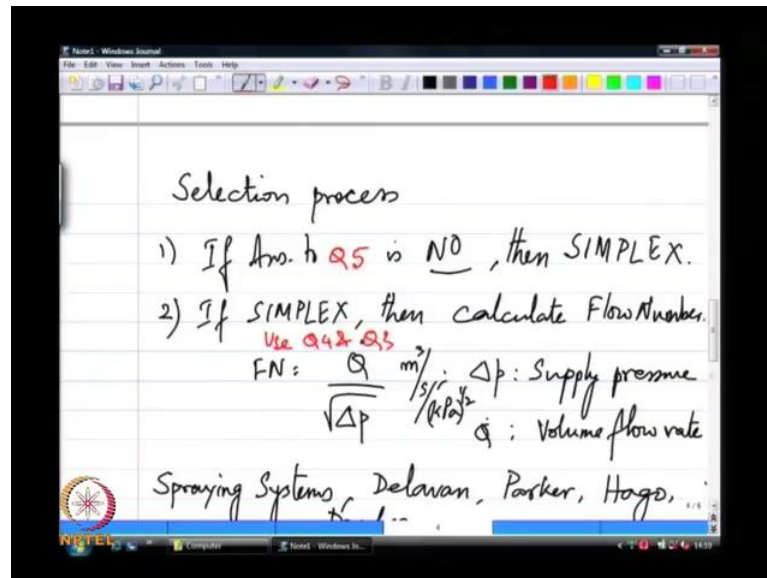 Note1 - Windows Journal
File Edit View Insert Actions Tools Help
Selection process
1) If Ans. to Q5 is NO, then SIMPLEX.
2) If SIMPLEX, then calculate Flow Number.
Use Q4 & Q3
FN: Q m³/s/(kPa)^1/2 ; Δp : Supply pressure
√Δp Q̇ : Volume flow rate
Spraying Systems, Delavan, Parker, Hago,
4/6
NPTEL Computer Note1 - Windows Jo... 14:10